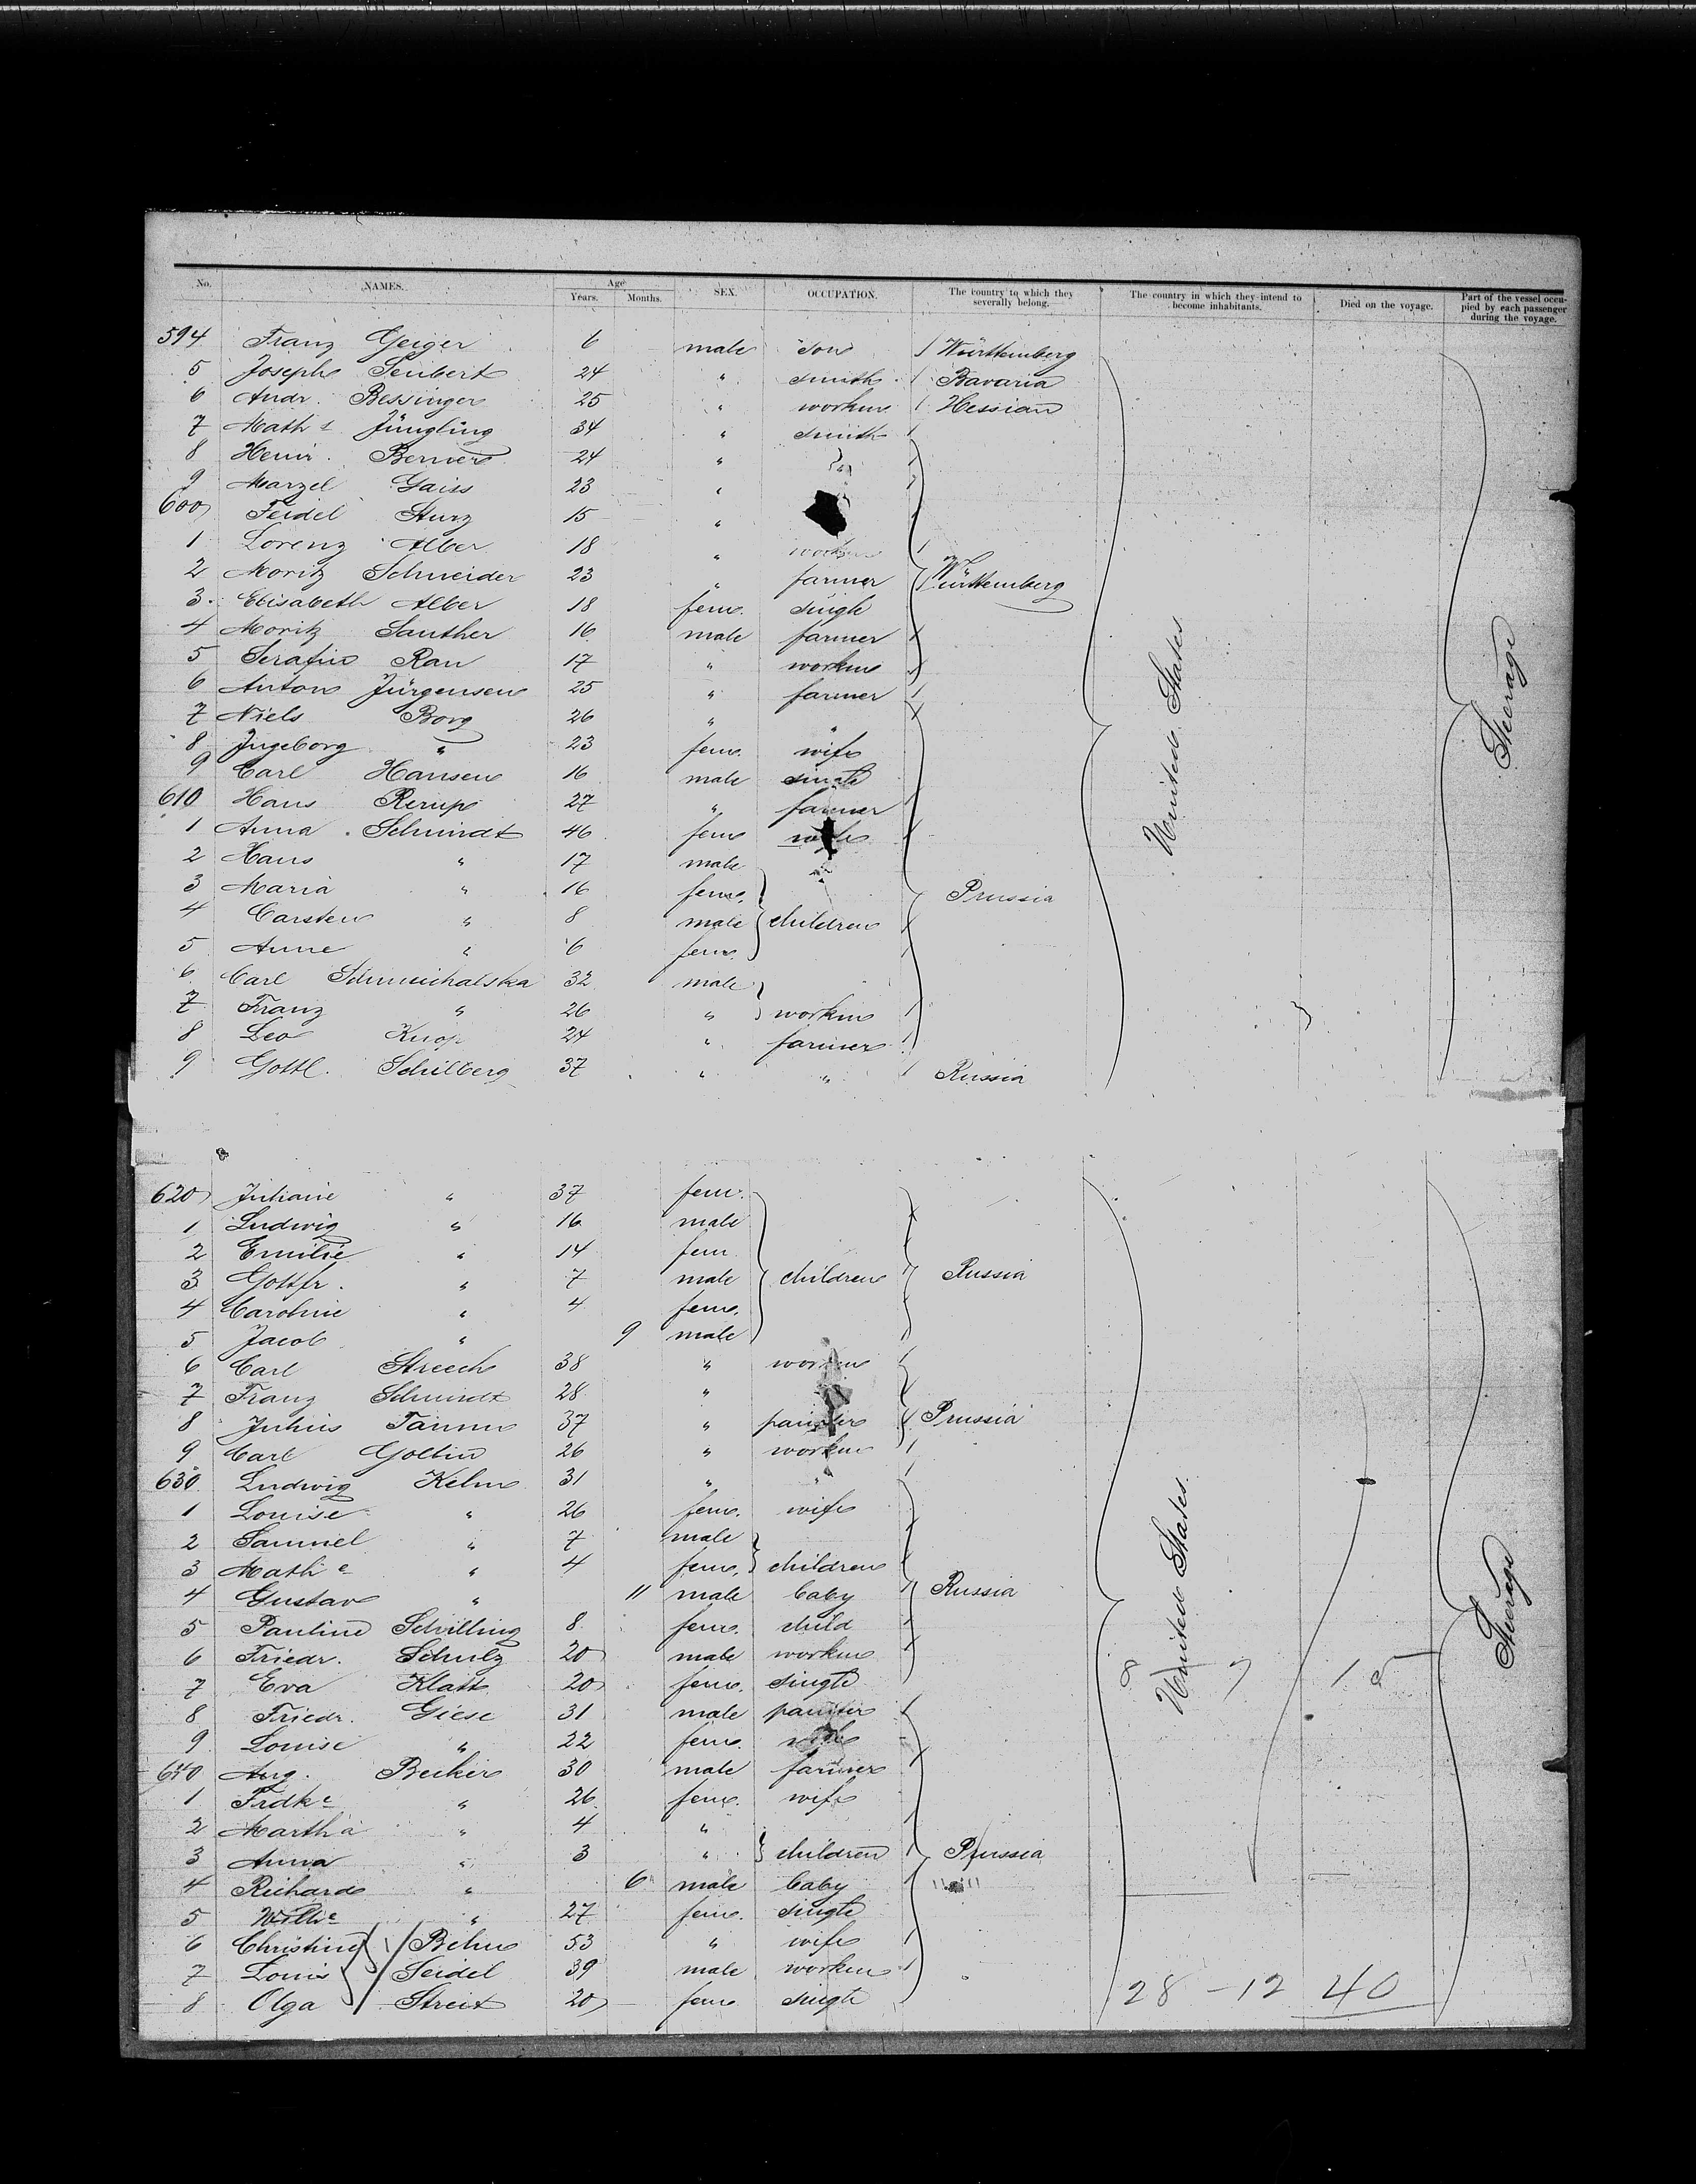 No. NAMES. Age Years. Months. SEX. OCCUPATION. The country to which they severally belong. The country in which they intend to become inhabitants. Died on the voyage. Part of the vessel occupied by each passenger during the voyage.
594 Franz Geiger 6 male son Württemberg
5 Joseph Seubert 24 " smith Bavaria
6 Andr. Bessinger 25 " workm Hessian
7 Math s Jüngling 34 " smith
8 Heinr. Berner 24 " "
9 Marzel Gaiss 23 "
600 Feidel Sturz 15 "
1 Lorenz Alber 18 " workm
2 Moritz Schneider 23 " farmer Württemberg
3 Elisabeth Alber 18 fem. single
4 Moritz Sauther 16 male farmer
5 Serafin Rau 17 " workm
6 Anton Jürgensen 25 " farmer
7 Niels Borg 26 " "
8 Ingeborg " 23 fem. wife
9 Carl Hansen 16 male single
610 Hans Rerup 27 " farmer
1 Anna Schmidt 46 fem wife
2 Hans " 17 male
3 Maria " 16 fem. Prussia
4 Carsten " 8 male children
5 Anne " 6 fem.
6 Carl Schmichalska 32 male
7 Franz " 26 " workm
8 Leo Knop 24 " farmer
9 Gottl. Schilberg 37 " " Russia
United States
Steerage
620 Juliane " 37 fem.
1 Ludwig " 16 male
2 Emilie " 14 fem
3 Gottfr. " 7 male children Russia
4 Caroline " 4 fem.
5 Jacob " 9 male
6 Carl Streech 38 " workm
7 Franz Schmidt 28 "
8 Julius Tamm 37 " painter Prussia
9 Carl Goltin 26 " workm
630 Ludwig Kelm 31 " "
1 Louise " 26 fem. wife
2 Samuel " 7 male
3 Math e " 4 fem. children
4 Gustav " 11 male baby Russia
5 Pauline Schilling 8 fem. child
6 Friedr. Schulz 20 male workm
7 Eva Klatt 20 fem. single
8 Friedr. Giese 31 male painter
9 Louise " 22 fem. wife
640 Aug. Becker 30 male farmer
1 Frdke " 26 fem. wife
2 Martha " 4 "
3 Anna " 3 " children Prussia
4 Richard " 6 male baby
5 Willie " 27 fem. single
6 Christine Behm 53 " wife
7 Louis Seidel 39 male workm
8 Olga Streit 20 fem single
United States
8 7 15
28 - 12 40
Steerage